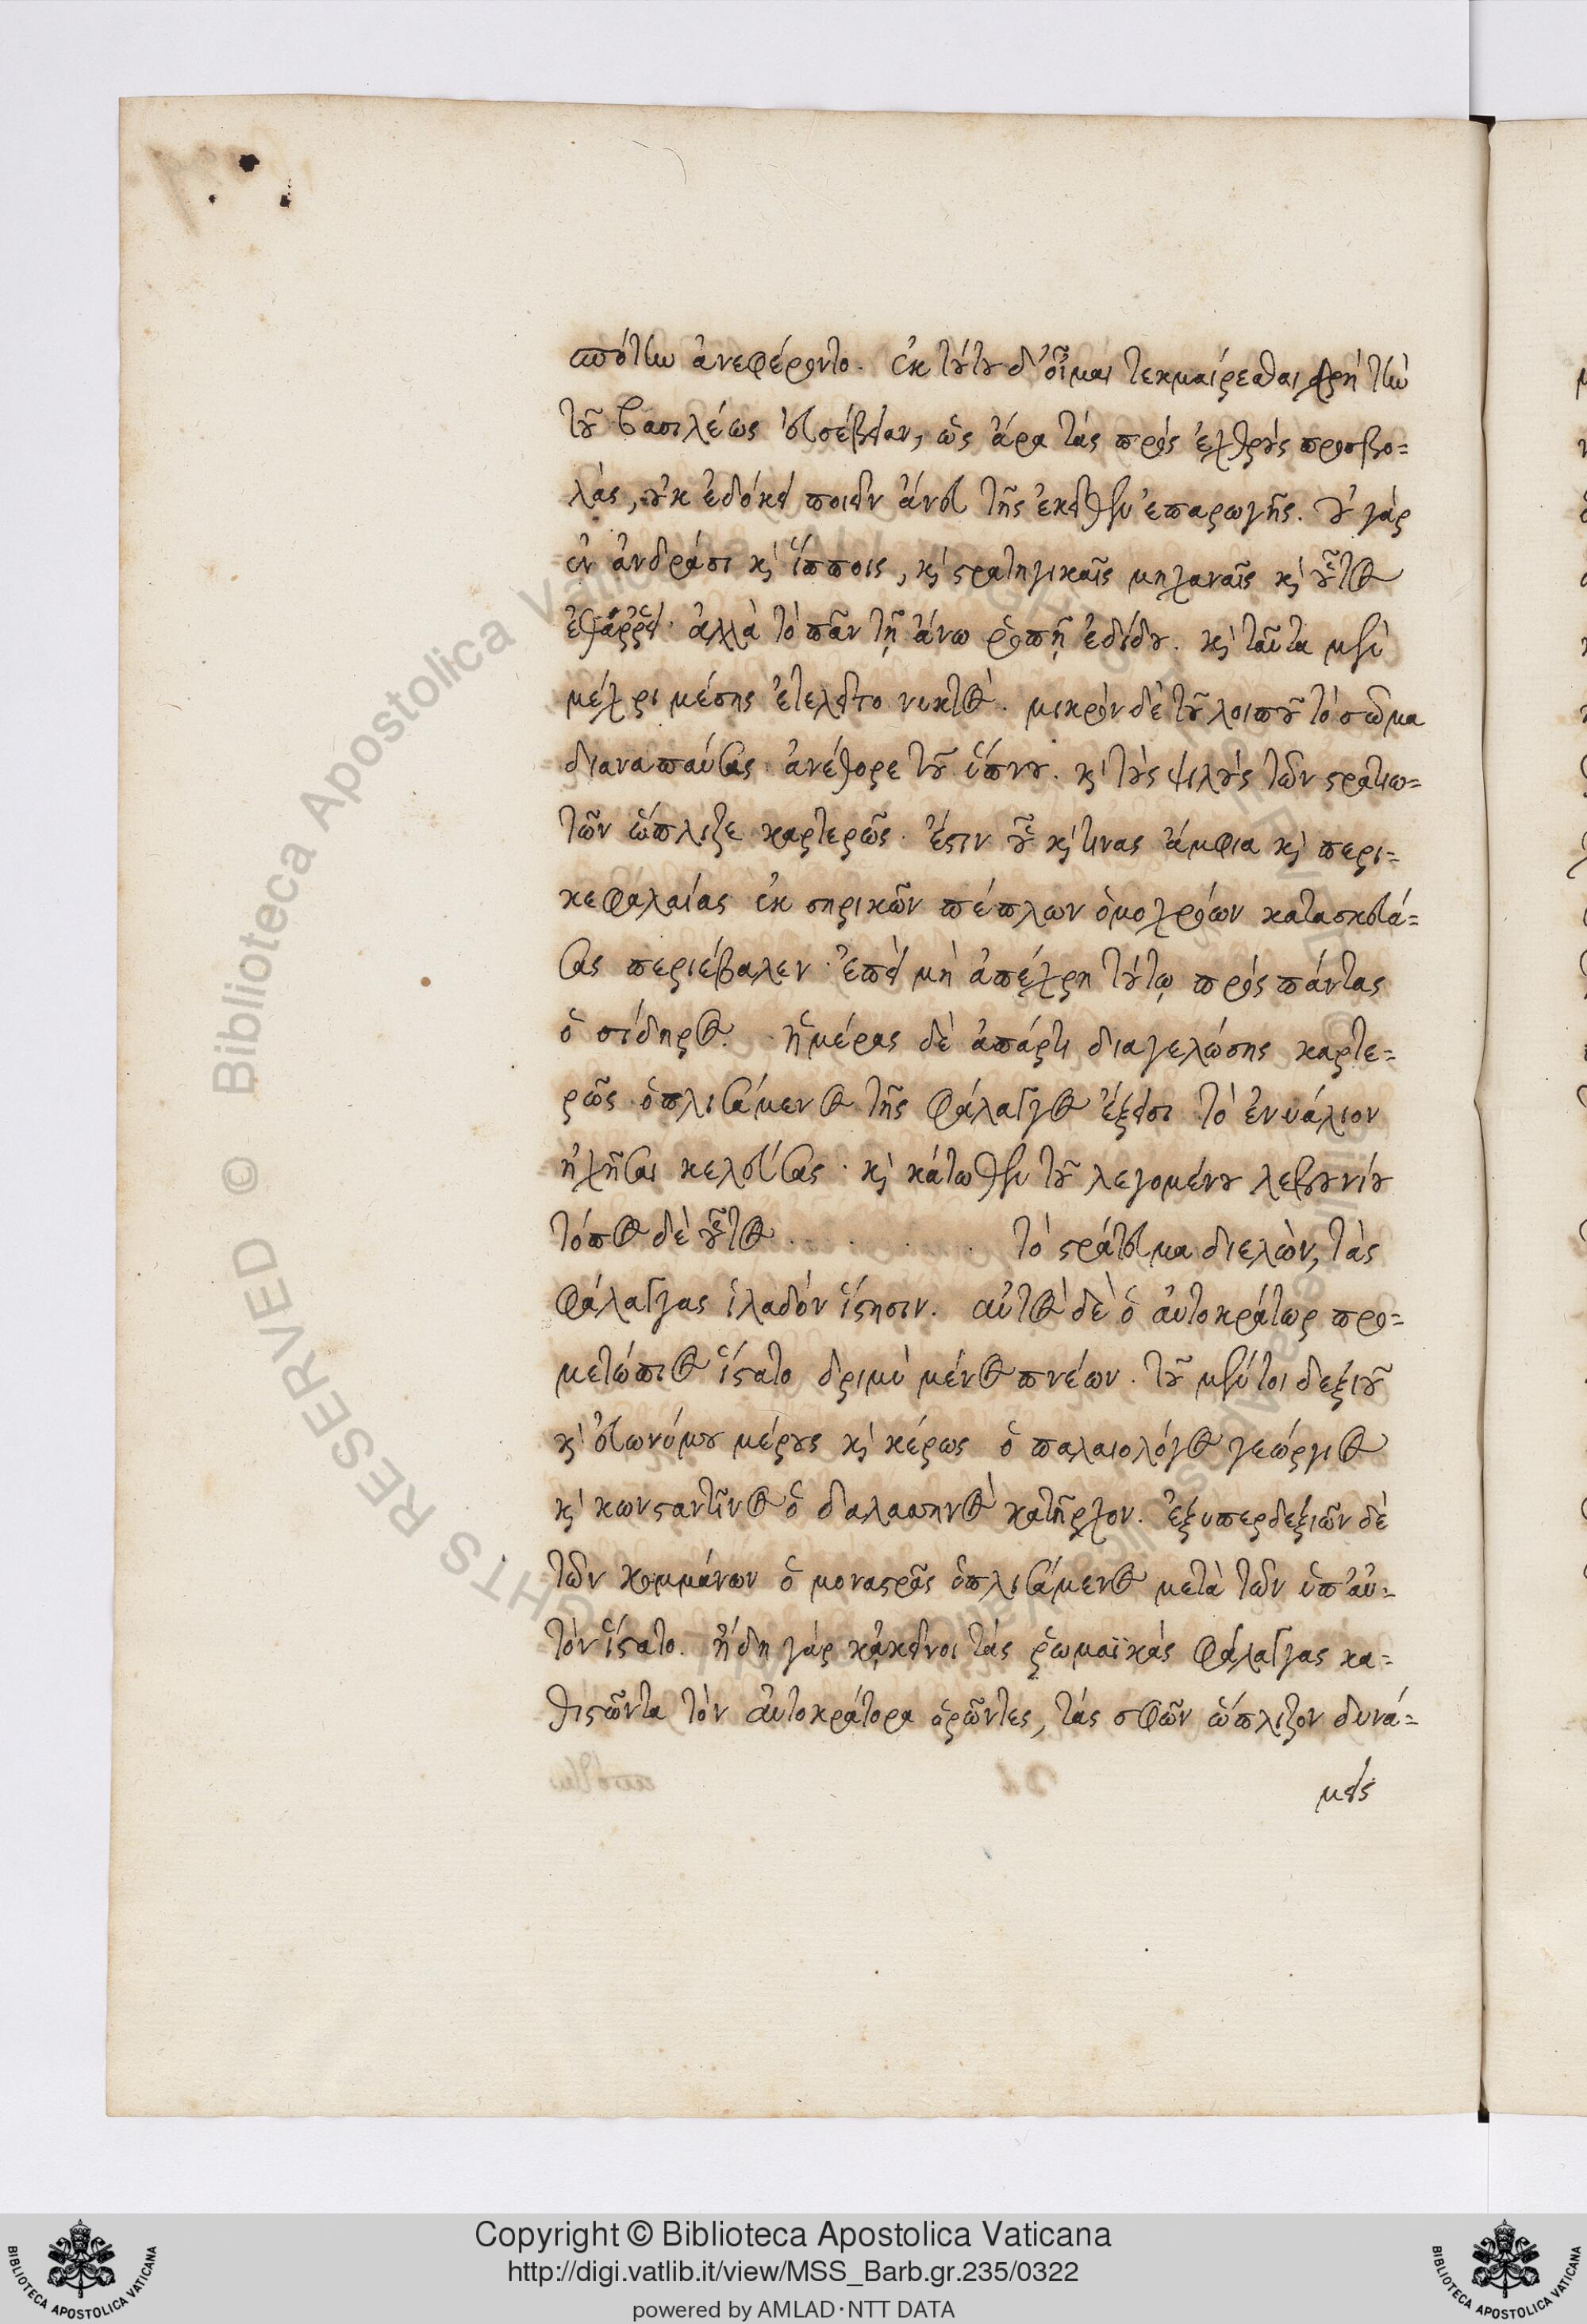 πρώτην ἀνεφέροντο. ἐκ τούτου δ' οἶμαι τεκμαίρεσθαι χρὴ τὴν
τοῦ βασιλέως εὐσέβειαν, ὡς ἄρα τὰς πρὸς ἐχθροὺς προσβο=
λὰς, οὐκ ἐδόκει ποιεῖν ἄνευ τῆς ἐκεῖθεν ἐπαρωγῆς. οὐ γὰρ
ἐν ἀνδράσι καὶ ἵπποις, καὶ στρατηγικαῖς μηχαναῖς καὶ οὗτος
ἐθάρρει. ἀλλὰ τὸ πᾶν τῇ ἄνω ῥοπῇ ἐδίδου. καὶ ταῦτα μὲν
μέχρι μέσης ἐτελεῖτο νυκτός. μικρὸν δὲ τοῦ λοιποῦ τὸ σῶμα
διαναπαύσας ἀνέθορε τοῦ ὕπνου. καὶ τοὺς ψιλοὺς τῶν στρατιω=
τῶν ὥπλιζε καρτερῶς. ἔστιν οὗ καί τινας ἄμφια καὶ περι=
κεφαλαίας ἐκ σηρικῶν πέπλων ὁμοχρόων κατασκευά=
σας περιέβαλεν. ἐπεὶ μὴ ἀπέχρη τούτῳ πρὸς πάντας
ὁ σίδηρος. ἡμέρας δὲ ἀπάρτι διαγελώσης καρτε=
ρῶς ὁπλισάμενος τῆς φάλαγγος ἔξεισι τὸ ἐνυάλιον
ἠχῆσαι κελεύσας. καὶ κάτωθεν τοῦ λεγομένου λεβουνίου
τόπος δὲ οὗτος . . . . . τὸ στράτευμα διελὼν, τὰς
φάλαγγας ἰλαδὸν ἵστησιν. αὐτὸς δὲ ὁ αὐτοκράτωρ προ=
μετώπιος ἵστατο δριμὺ μένος πνέων. τοῦ μέντοι δεξιοῦ
καὶ εὐωνύμου μέρους καὶ κέρως ὁ παλαιολόγος γεώργιος
καὶ κωνσταντῖνος ὁ δαλασηνὸς κατῆρχον. ἐξ υπερδεξιῶν δὲ
τῶν κομμάνων ὁ μοναστρᾶς ὁπλισάμενος μετὰ τῶν ὑπ' αὐ=
τὸν ἵστατο. ἤδη γὰρ κἀκεῖνοι τὰς ῥωμαϊκὰς φάλαγγας κα=
θιστῶντα τὸν αὐτοκράτορα ὁρῶντες, τὰς σφῶν ὥπλιζον δυνά=
μεις
Copyright © Biblioteca Apostolica Vaticana
http://digi.vatlib.it/view/MSS_Barb.gr.235/0322
powered by AMLAD · NTT DATA